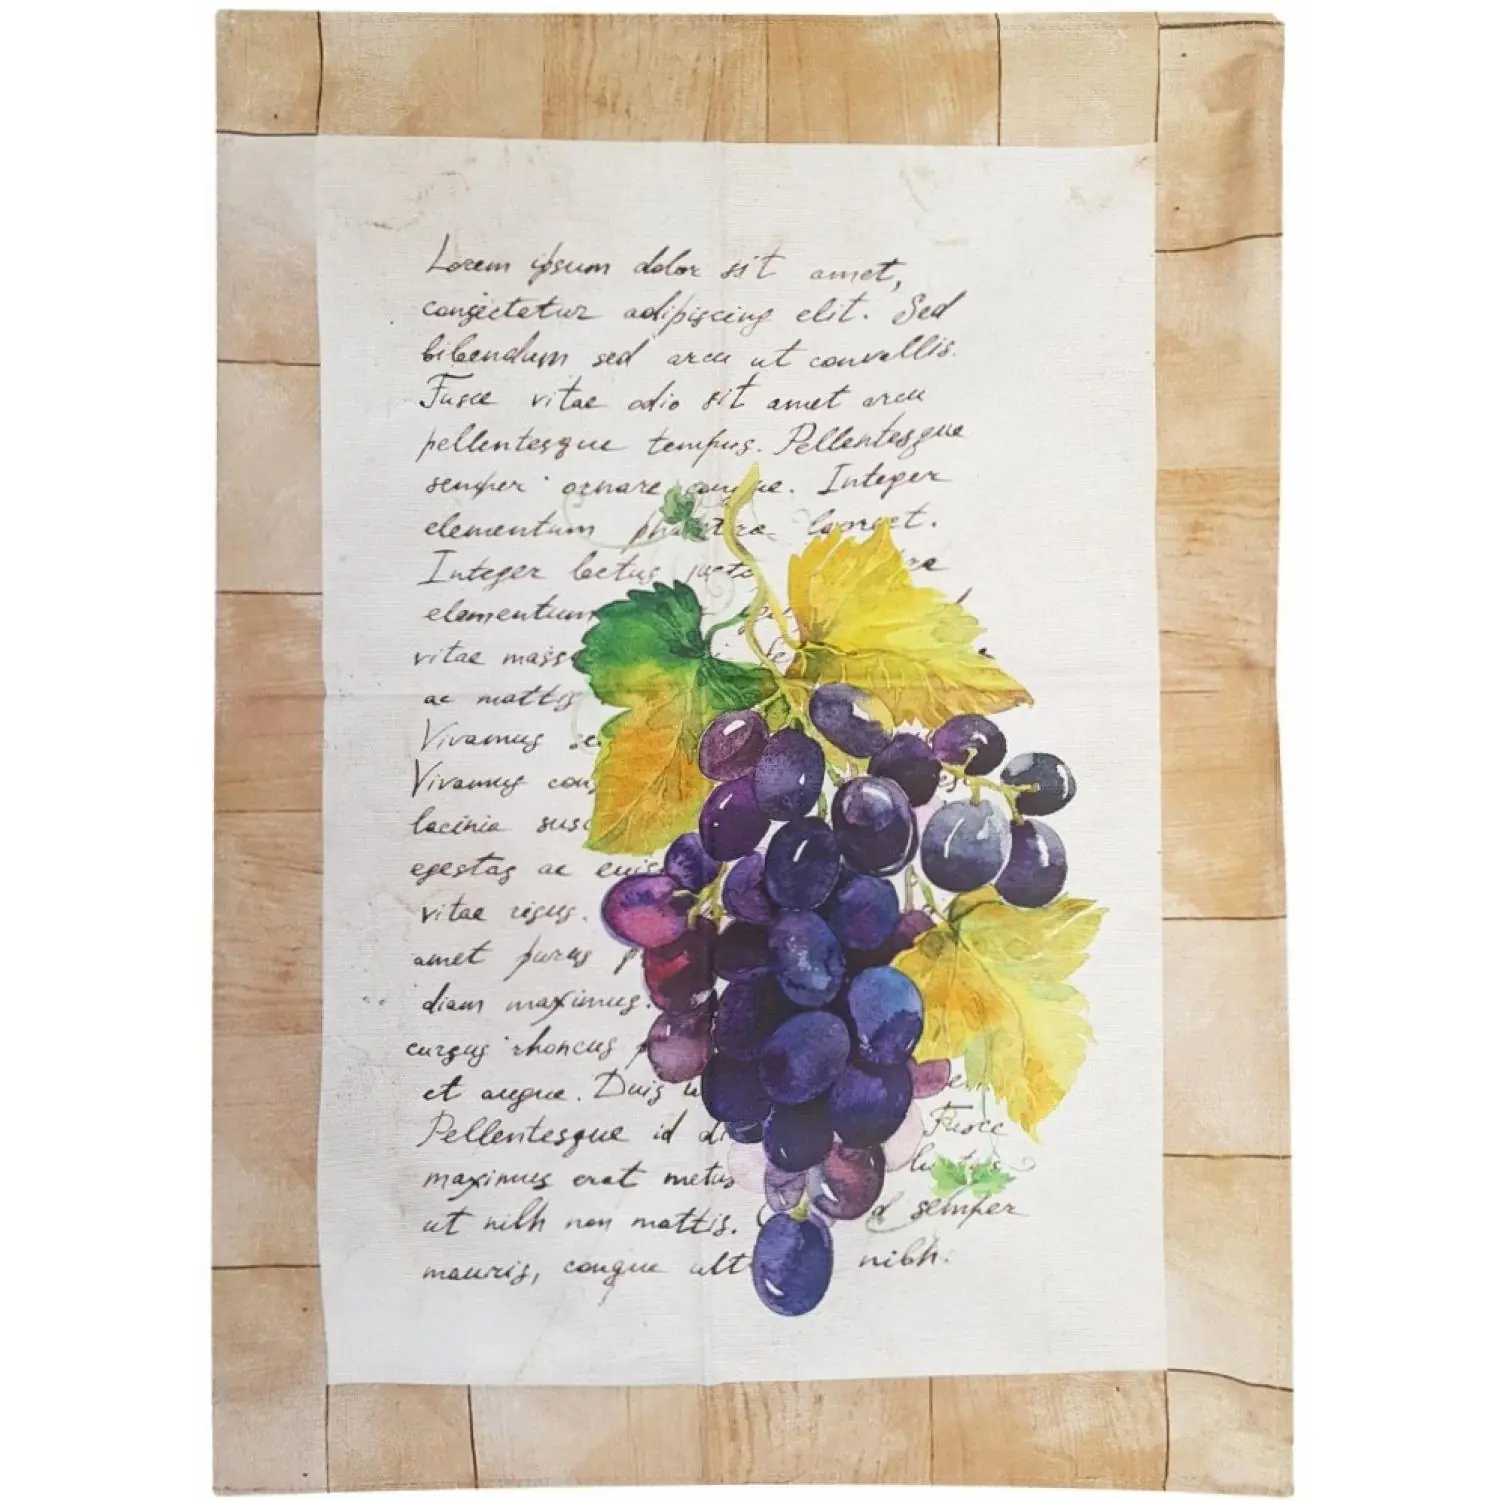 Lorem ipsum dolor sit amet,
consectetur adipiscing elit. Sed
bibendum sed arcu ut convallis.
Fusce vitae odio sit amet arcu
pellentesque tempus. Pellentesque
semper ornare congue. Integer
elementum pharetra laoreet.
Integer lectus justo
elementum
vitae massa
ac mattis
Vivamus
Vivamus
lacinia
egestas ac
vitae risus.
amet purus
diam maximus.
cursus rhoncus
et augue. Duis
Pellentesque id Fusce
maximus erat metus luctus
ut nibh non mattis. semper
mauris, congue nibh.